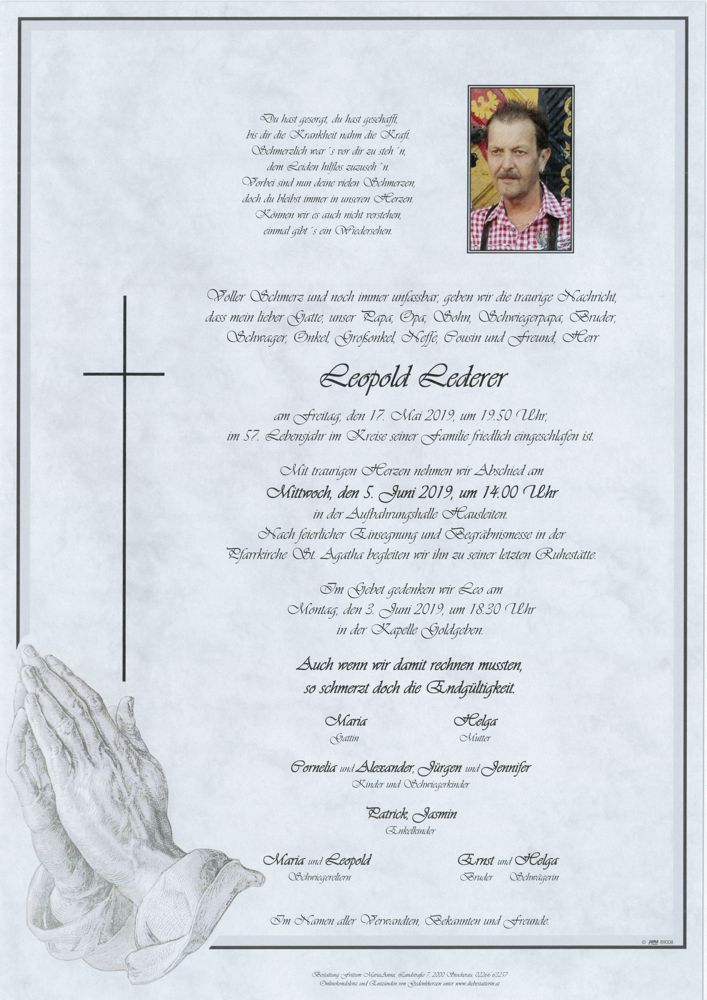 Du hast gesorgt, du hast geschafft,
bis dir die Krankheit nahm die Kraft.
Schmerzlich war´s vor dir zu steh´n,
dem Leiden hilflos zuzuseh´n.
Vorbei sind nun deine vielen Schmerzen,
doch du bleibst immer in unseren Herzen.
Können wir es auch nicht verstehen,
einmal gibt´s ein Wiedersehen.
Voller Schmerz und noch immer unfassbar, geben wir die traurige Nachricht,
dass mein lieber Gatte, unser Papa, Opa, Sohn, Schwiegerpapa, Bruder,
Schwager, Onkel, Großonkel, Neffe, Cousin und Freund, Herr
Leopold Lederer
am Freitag, den 17. Mai 2019, um 19.50 Uhr,
im 57. Lebensjahr im Kreise seiner Familie friedlich eingeschlafen ist.
Mit traurigen Herzen nehmen wir Abschied am
Mittwoch, den 5. Juni 2019, um 14.00 Uhr
in der Aufbahrungshalle Hausleiten.
Nach feierlicher Einsegnung und Begräbnismesse in der
Pfarrkirche St. Agatha begleiten wir ihn zu seiner letzten Ruhestätte.
Im Gebet gedenken wir Leo am
Montag, den 3. Juni 2019, um 18.30 Uhr
in der Kapelle Goldgeben.
Auch wenn wir damit rechnen mussten,
so schmerzt doch die Endgültigkeit.
Maria Helga
Gattin Mutter
Cornelia und Alexander, Jürgen und Jennifer
Kinder und Schwiegerkinder
Patrick, Jasmin
Enkelkinder
Maria und Leopold Ernst und Helga
Schwiegereltern Bruder Schwägerin
Im Namen aller Verwandten, Bekannten und Freunde.
Bestattung Fritzm MariaAnna, Landstraße 7, 2000 Stockerau, 02266 63257
Onlinekondolenz und Entzünden von Gedenkkerzen unter www.diebestatterin.at